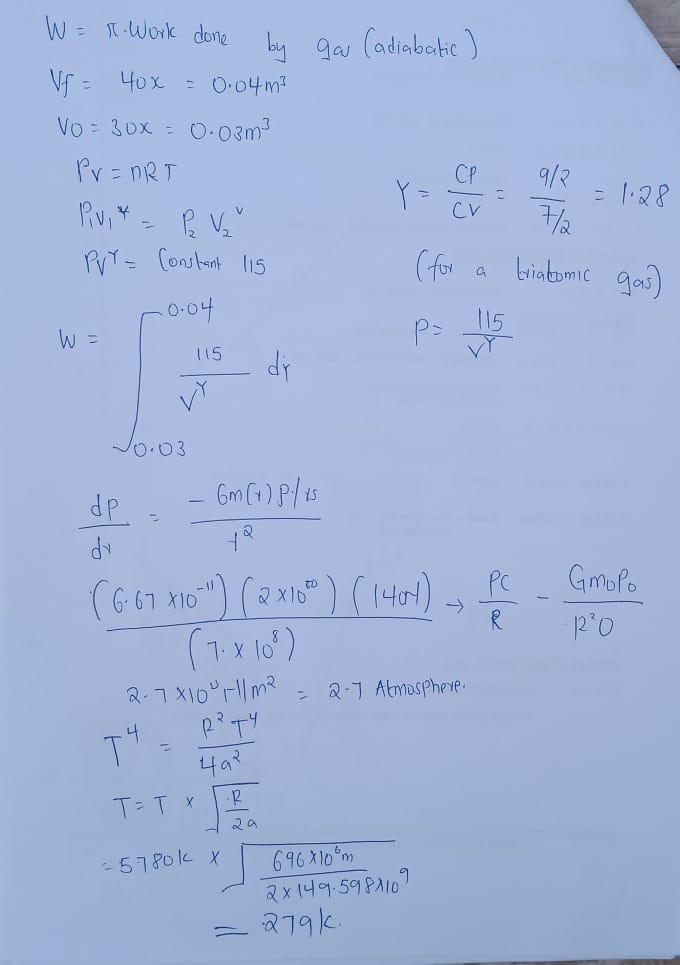 W = π. Work done by gas (adiabatic)
Vf = 40x = 0.04m³
V0 = 30x = 0.03m³
Pv = nRT
γ = CP/CV = 9/2 / 7/2 = 1.28
P₁V₁^γ = P₂ V₂^γ
PV^γ = Constant 115
(for a triatomic gas)
W = ∫ 0.04 0.03 115/V^γ dr
P = 115/V^γ
dp/dr = - Gm(r) P./rs / r²
(6.67 x10⁻¹¹) (2 x10³⁰) (1401) / (7. x 10⁸) → PC/R - GmoPo/R²O
= 2.7 Atmosphere.
T⁴ = R² T⁴ / 4a²
T = T x √R/2a
= 5780k x √696x10⁶m / 2x149.598x10⁹
= 279k.